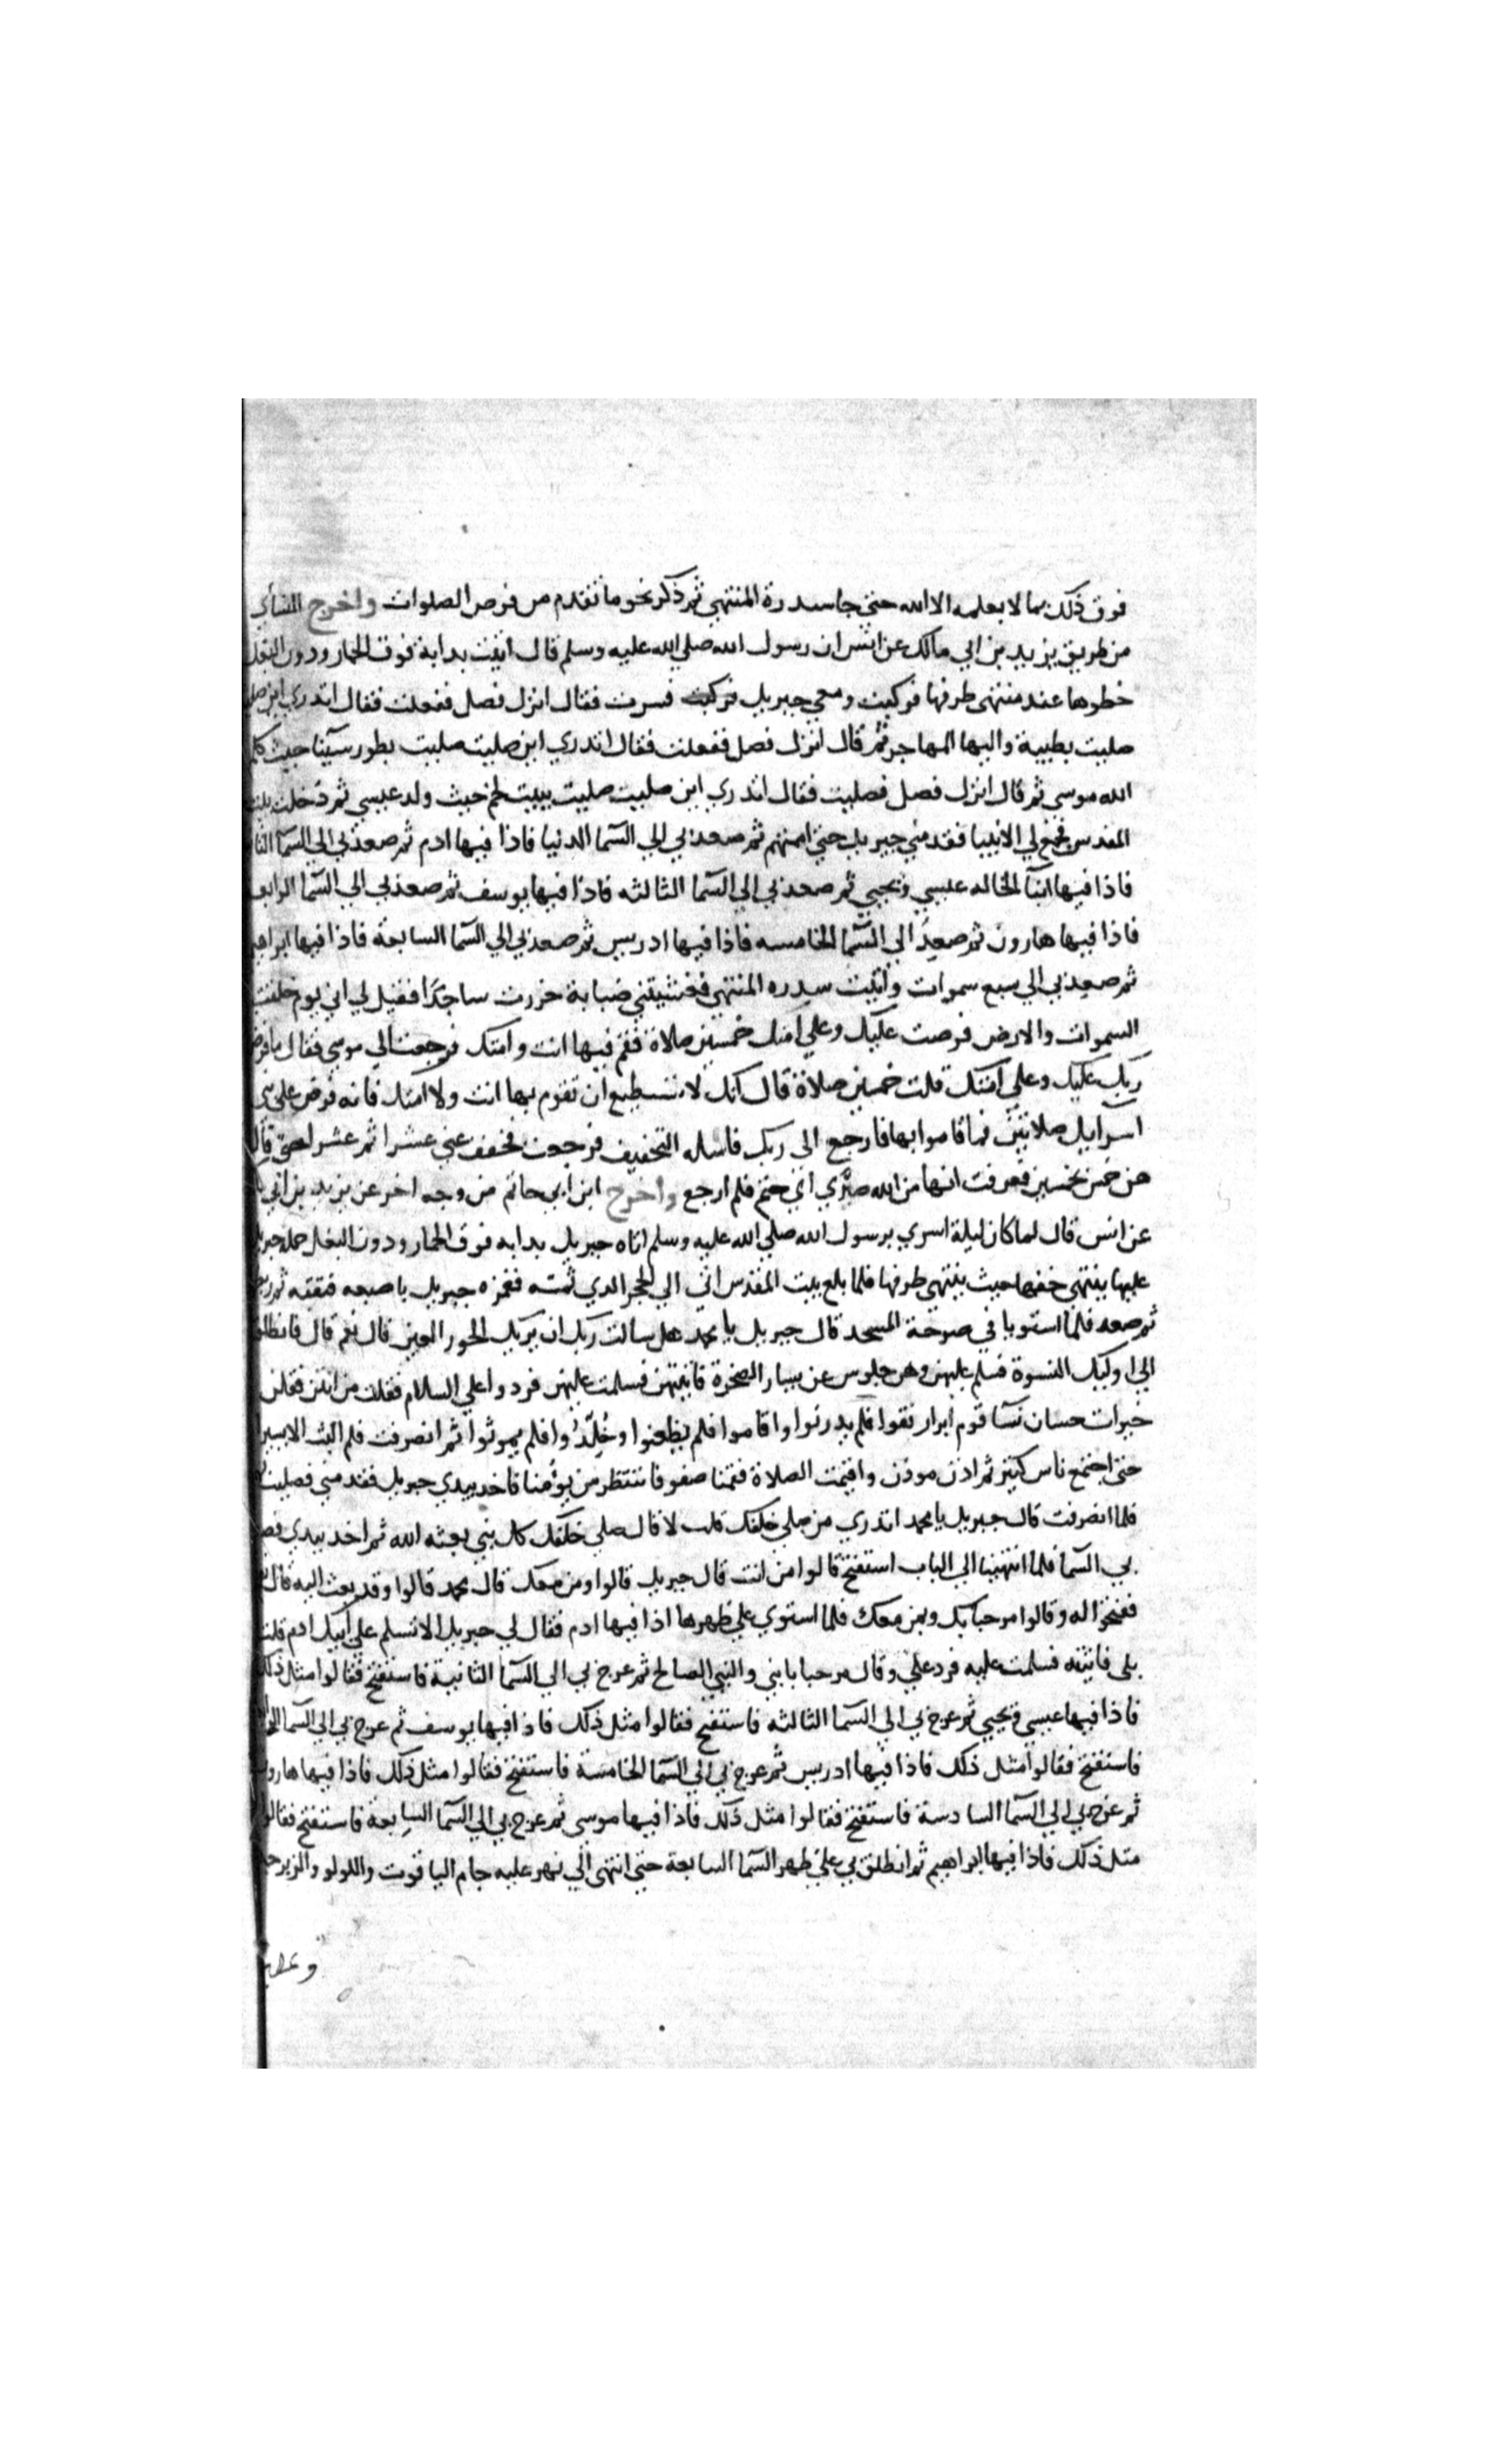 فوق ذلك بما لا يعلمه الا الله حتى جا سدرة المنتهي ثم ذكر نحو ما تقدم من فرض الصلوات واخرج النسأي
من طريق يزيد بن ابي مالك عن انس ان رسول الله صلي الله عليه وسلم قال اتيت بدابة فوق الحمار ودون البغل
خطوها عند منتهي طرفها فركبت ومعي جبريل فسرت فقال انزل فصل ففعلت فقال اتدري اين صلي
صليت بطيبة واليها المهاجر ثم قال انزل فصل ففعلت فقال اتدري اين صليت صليت بطور سينا حيث كلم
الله موسي ثم قال انزل فصل فصليت فقال اتدري اين صليت صليت ببيت لحم حيث ولد عيسي ثم دخلت بيت
المقدس فجمع لي الانبيا فقدمني جبريل حتي اممتهم ثم صعد بي الي السما الدنيا فاذا فيها ادم ثم صعد بي الي السما الثا
فاذا فيها ابنا الخاله عيسي ويحيي ثم صعد بي الي السما الثالثه فاذا فيها يوسف ثم صعد بي الي السما الرابع
فاذا فيها هارون ثم صعد الي السما الخامسه فاذا فيها ادريس ثم صعد بي الي السما السابعة فاذا فيها ابراهيم
ثم صعد بي الي سبع سموات واتيت سدره المنتهي فغشيتني ضبابة خررت ساجدا فقيل لي اني يوم خلقت
السموات والارض فرضت عليك وعلي امتك خمسين صلاة فقم فيها انت وامتك فرجعت الي موسي فقال ما فرض
ربك عليك وعلي امتك قلت خمسين صلاة قال انك لا تستطيع ان تقوم بها انت ولا امتك فانه فرض علي بني
اسرايل صلاتين فما قاموا بها فارجع الي ربك فاساله التخفيف فرجعت فخفف عني عشرا ثم عشرا حتي قال
هن خمس بخمسين فعرفت انها من الله صري اي حتم فلم ارجع واخرج ابن ابي حاتم من وجه اخر عن يزيد بن ابي
عن انس قال لما كان ليلة اسري برسول الله صلي الله عليه وسلم اتاه جبريل بدابه فوق الحمار ودون البغل حمله جبريل
عليها ينتهي خفها حيث ينتهي طرفها فلما بلغ بيت المقدس اتي الي الحجر الدي ثمته فغمزه جبريل باصبعه فثقبه ثم ربط
ثم صعد فلما استويا في صرحة المسجد قال جبريل يا محمد هل سالت ربك ان يريك الحور العين قال نعم قال فانطلق
الي اوليك النسوة فسلم عليهن وهن جلوس عن يسار الصخرة فاتيتهن فسلمت عليهن فردوا علي السلام فقلت من انتن فقلن
خيرات حسان نسا قوم ابرار نقوا فلم يدرنوا واقاموا فلم يظعنوا وخلدوا فلم يموتوا ثم انصرفت فلم البث الا يسيرا
حتي اجتمع ناس كثير ثم اذن موذن واقيمت الصلاة فقمنا صفوفا ننتظر من يؤمنا فاخد بيدي جبريل فقدمني فصليت
فلما انصرفت قال جبريل يا محمد اتدري من صلي خلفك قلت لا قال صلي خلفك كل نبي بعثه الله ثم اخد بيدي فصعد
بي السما فلما انتهينا الي الباب استفتح قالوا من انت قال جبريل قالوا ومن معك قال محمد قالوا وقد بعث اليه قال
ففتحوا له وقالوا مرحبا بك وبمن معك فلما استوي علي ظهرها اذا فيها ادم فقال لي جبريل الا تسلم علي ابيك ادم قلت
بلي فاتيته فسلمت عليه فرد علي وقال مرحبا بابني والنبي الصالح ثم عرج بي الي السما الثانية فاستفتح فقالوا مثل ذلك
فاذا فيها عيسي ويحيي ثم عرج بي الي السما الثالثه فاستفتح فقالوا مثل ذلك فاذا فيها يوسف ثم عرج بي الي السما
فاستفتح فقالوا مثل ذلك فاذا فيها ادريس ثم عرج بي الي السما الخامسة فاستفتح فقالوا مثل ذلك فاذا فيها هارون
ثم عرج بي الي السما السادسة فاستفتح فقالوا مثل ذلك فاذا فيها موسي ثم عرج بي الي السما السابعة فاستفتح فقالوا
مثل ذلك فاذا فيها ابراهيم ثم انطلق بي علي ظهر السما السابعة حتي انتهي الي نهر عليه جام الياقوت واللولو والزبرجد